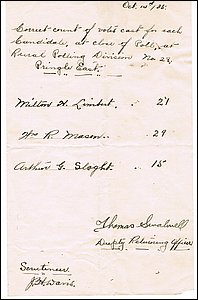 Oct. 14th/25.
Correct count of votes cast for each
Candidate, at close of Poll, at
Rural Polling Division No 28,
Pringle East.
Milton H. Limbert. 21
Wm R. Mason. 29
Arthur G. Slaght. 15
Thomas Swalwell
Deputy Returning Officer
Scrutineer